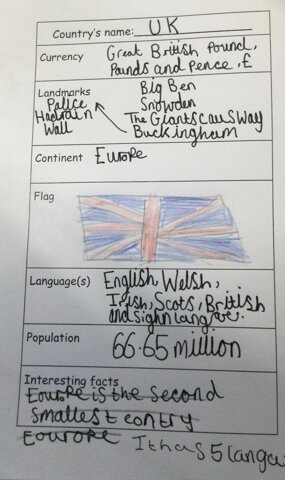 Country's name: UK
Currency
Great British Pound,
Pounds and Pence, £
Landmarks
Big Ben
Snowden
The Giants causway
Buckingham
Pallce
Hadrain
Wall
Continent Europe
Flag
Language(s)
English, Welsh,
Irish, Scots, British
and sighn langwe.
Population
66.65 million
Interesting facts
Eourope is the second
smallest contry
Eourope It has 5 langu